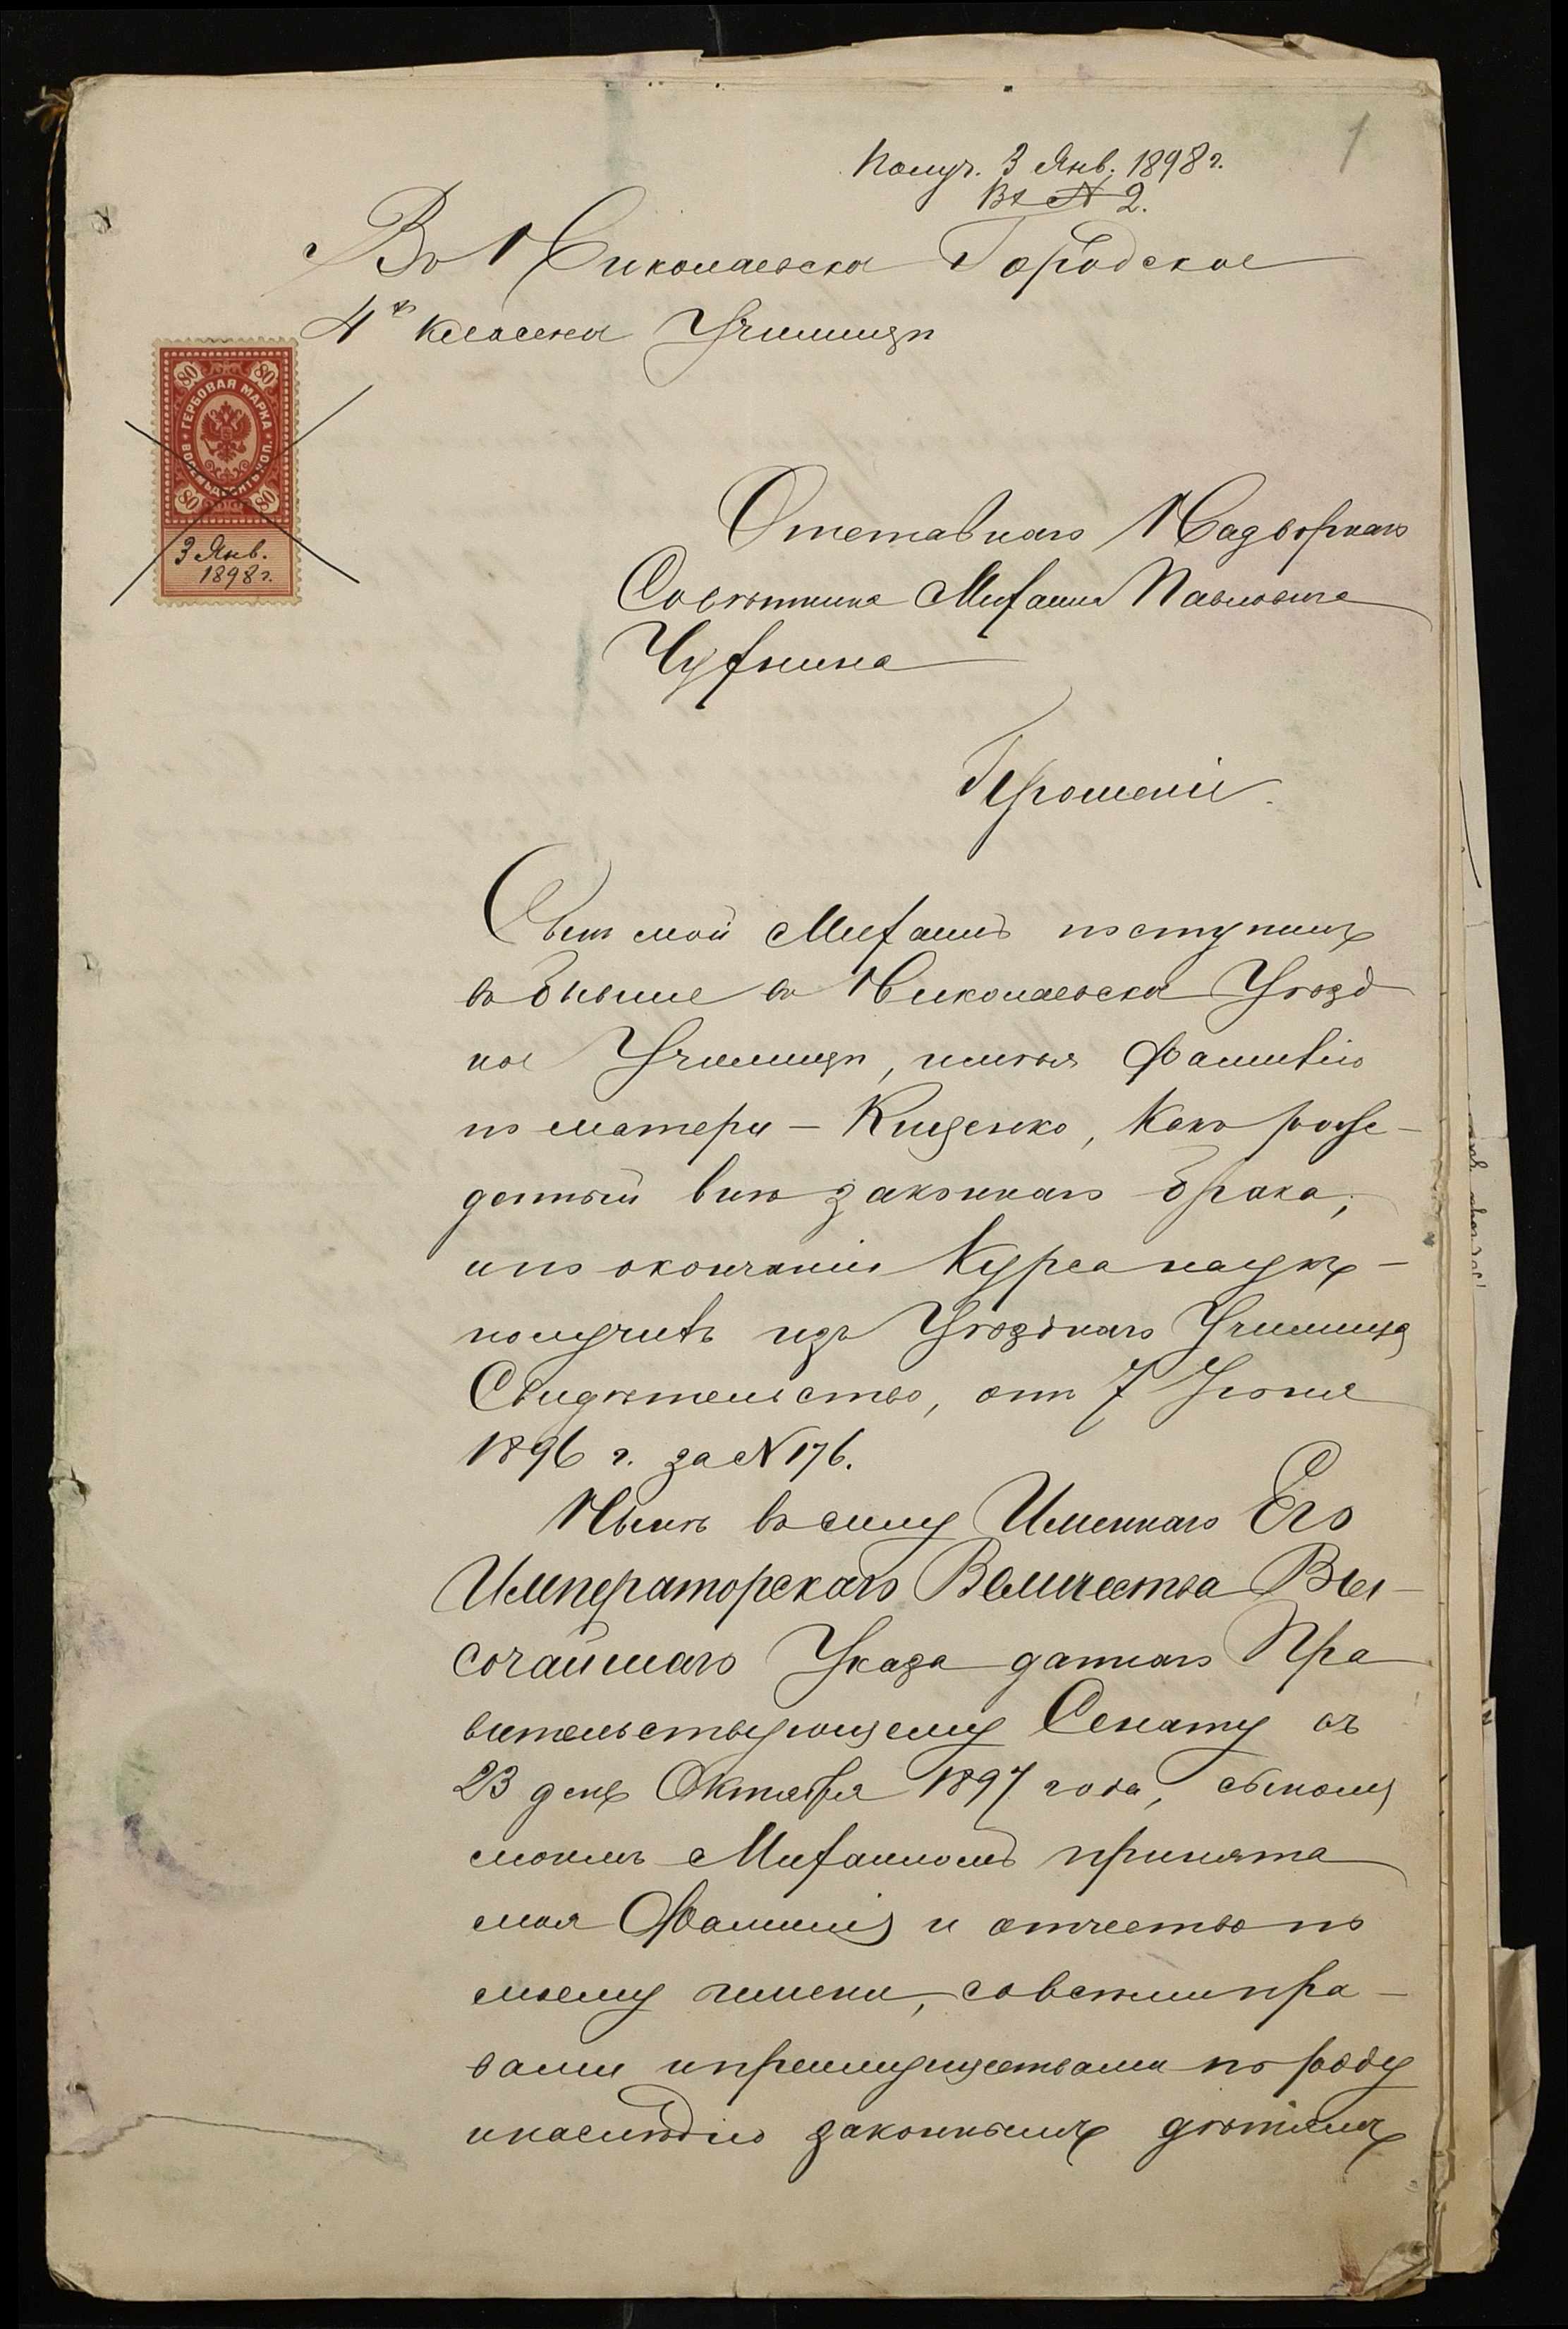 1
Получ. 3 Янв. 1898 г.
Вх № 2.
Въ Николаевское Городское
4х классное Училище
80 80
ГЕРБОВАЯ МАРКА
ВОСЕМЬДЕСЯТЪ КОП.
80 80
3 Янв.
1898 г.
Отставнаго Надворнаго
Совѣтника Михаила Павловича
Чухнина
Прошеніе.
Сынъ мой Михаилъ поступилъ
въ бывшее въ Николаевскѣ Уѣзд
ное Училище, имѣя Фамилію
по матери – Кищенко, какъ рож-
денный внѣ законнаго брака,
и по окончаніи Курса наукъ –
получилъ изъ Уѣзднаго Училища
Свидѣтельство, отъ 7 Іюня
1896 г. за № 176.
Нынѣ въ силу Именнаго Его
Императорскаго Величества Вы-
сочайшаго Указа даннаго Пра
вительствующему Сенату въ
23 день Октября 1897 года, сыномъ
моимъ Михаиломъ принята
моя Фамилія и отчество по
моему имени, со всѣми пра-
вами и преимуществами по роду
и наслѣдію законнымъ дѣтямъ